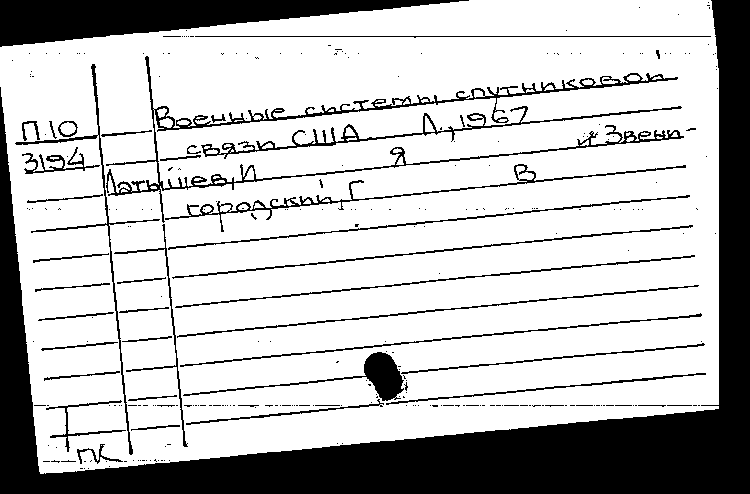 Военные системы спутниковой
П.10
связи США Л., 1967
3194
Латышев, И Я и Звени-
городский, Г В
ПК